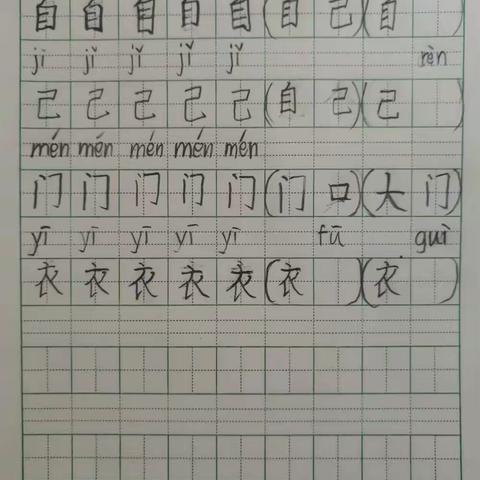 自 自 自 自 自 (自 己) (自 )
jǐ jǐ jǐ jǐ jǐ rèn
己 己 己 己 己 (自 己) (己 )
mén mén mén mén mén
门 门 门 门 门 (门 口) (大 门)
yī yī yī yī yī fū guì
衣 衣 衣 衣 衣 (衣 ) (衣 )